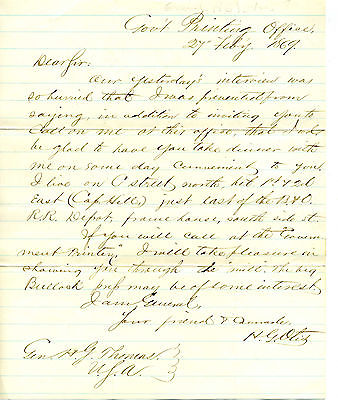 Gov't Printing Office,
27 Feby. 1869.
Dear Sir:
Our yesterday's interview was
so hurried that I was prevented from
saying, in addition to inviting you to
call on me at this office, that I w'd
be glad to have you take dinner with
me on some day convenient to you.
I live on C street north, bet 1st & 2d
East (Cap. Hill) just east of the B. & O.
R.R. Depot, frame house, south side st.
If you will call at the "Govern-
ment Printery," I will take pleasure in
showing you through the "mill." The big
Bullock press may be of some interest.
I am, General,
Your friend & Comrade,
H. G. Otis
Gen. H. G. Thomas,
U.S.A.